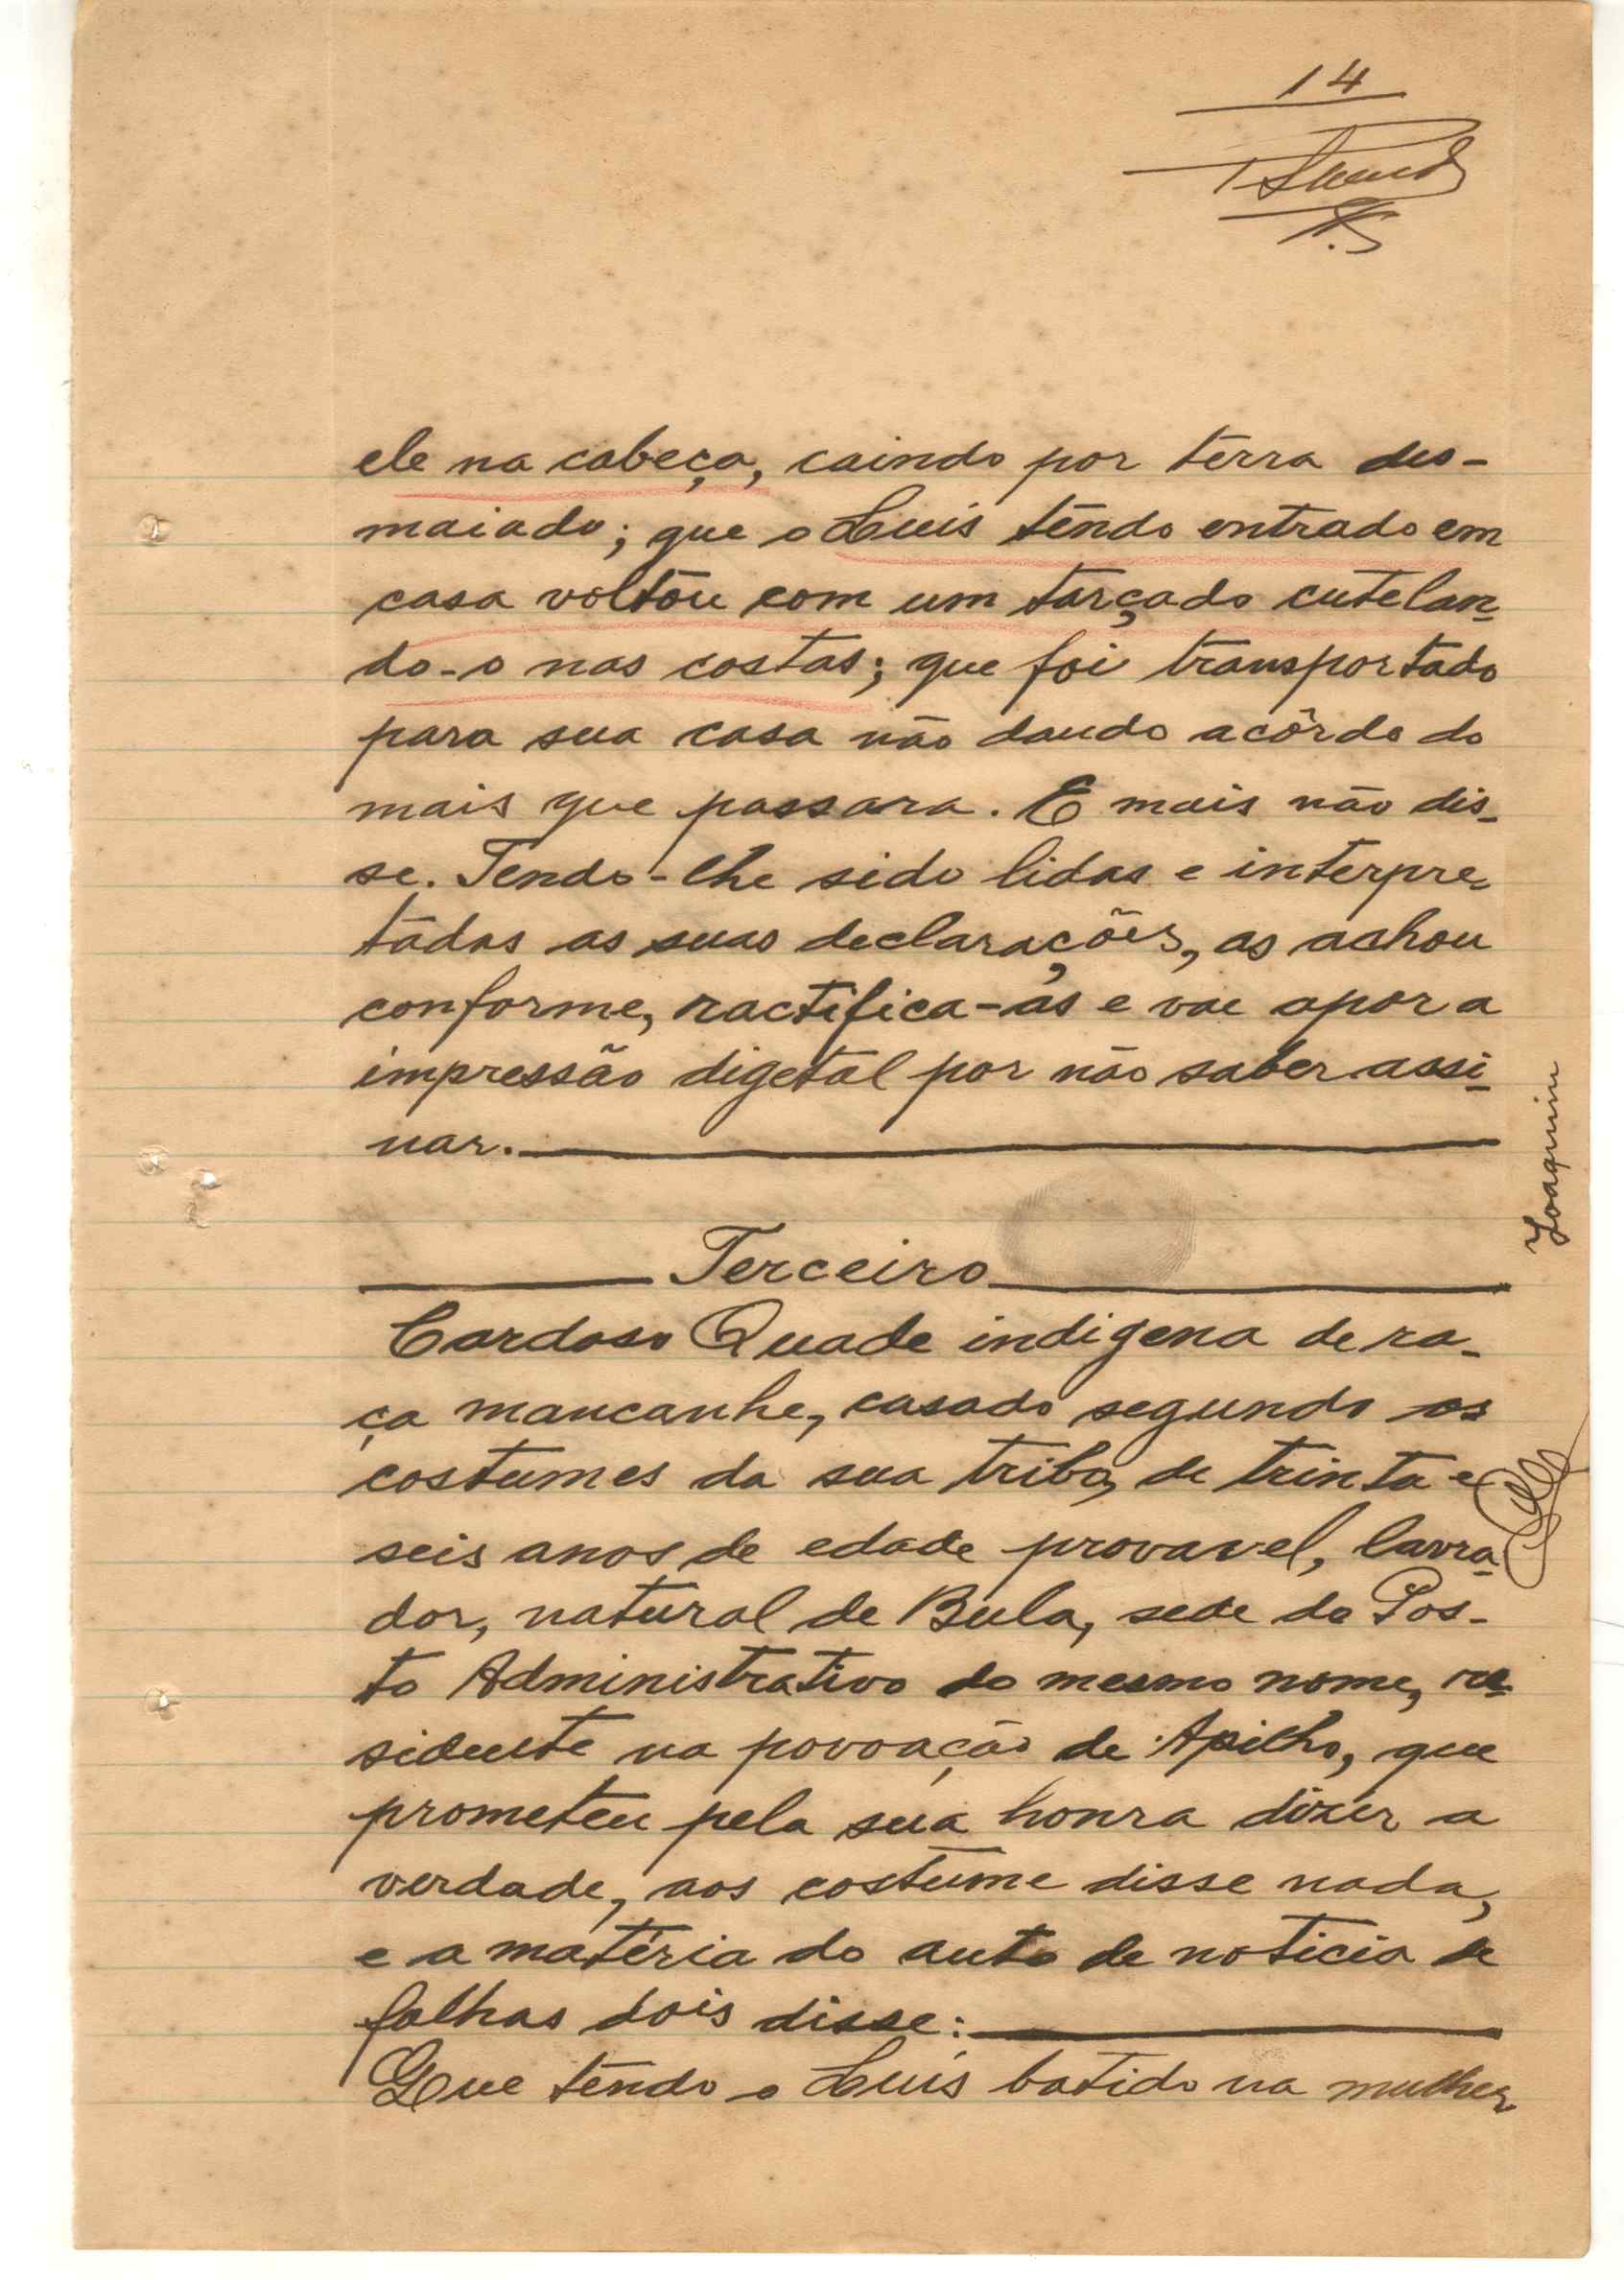 14
ele na cabeça, caindo por terra des-
maiado; que o Luis tendo entrado em
casa voltou com um tarçado cutelan-
do-o nas costas; que foi transportado
para sua casa não dando acôrdo do
mais que passara. E mais não dis-
se. Tendo-lhe sido lidas e interpre-
tadas as suas declarações, as achou
conforme, ractifica-as e vae apor a
impressão digetal por não saber assi-
nar.
Joaquim
Terceiro
Cardoso Quade indigena de ra-
ça mancanhe, casado segundo os
costumes da sua tribo, de trinta e
seis anos de edade provavel, lavra-
dor, natural de Bula, sede do Pos-
to Administrativo do mesmo nome, re-
sidente na povoação de Apilho, que
prometeu pela sua honra dizer a
verdade, aos costume disse nada,
e a matéria do auto de noticia de
folhas dois disse:
Que tendo o Luis batido na mulher